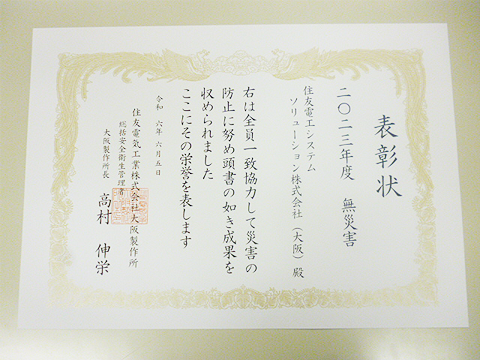 表彰状
二〇二三年度 無災害
住友電工システム
ソリューション株式会社（大阪）殿
右は全員一致協力して災害の
防止に努め頭書の如き成果を
収められました
ここにその栄誉を表します
令和 六年 六月五日
住友電気工業株式会社大阪製作所
総括安全衛生管理者
大阪製作所長 高村 伸栄